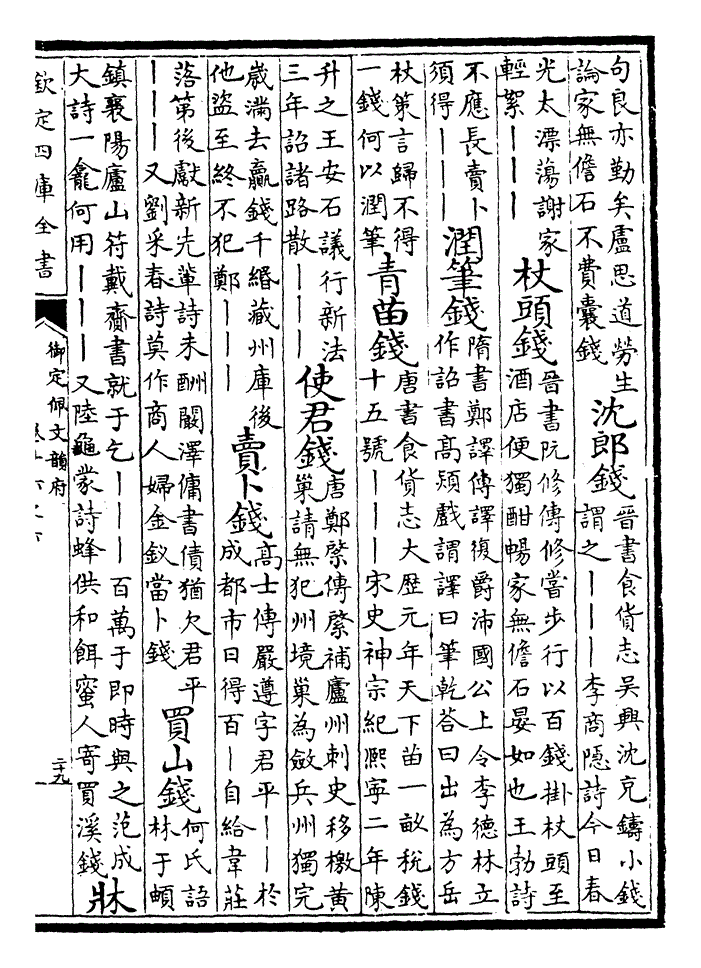 句良亦勤矣盧思道勞生
論家無儋石不費囊錢
沈郎錢
晉書食貨志吳興沈充鑄小錢
謂之｜｜｜李商隱詩今日春
光太漂蕩謝家
輕絮｜｜｜
杖頭錢
晉書阮修傳修嘗步行以百錢掛杖頭至
酒店便獨酣暢家無儋石晏如也王勃詩
不應長賣卜
須得｜｜｜
潤筆錢
隋書鄭譯傳譯復爵沛國公上令李德林立
作詔書高熲戲謂譯曰筆乾答曰出為方岳
杖策言歸不得
一錢何以潤筆
青苗錢
唐書食貨志大歷元年天下苗一畝稅錢
十五號｜｜｜宋史神宗紀熙寧二年陳
升之王安石議行新法
三年詔諸路散｜｜｜
使君錢
唐鄭綮傳綮補廬州刺史移檄黃
巢請無犯州境巢為斂兵州獨完
歲滿去贏錢千緡藏州庫後
他盜至終不犯鄭｜｜｜
賣卜錢
高士傳嚴遵字君平｜｜於
成都市日得百｜自給韋莊
落第後獻新先輩詩未酬闞澤傭書債猶欠君平
｜｜｜又劉采春詩莫作商人婦金釵當卜錢
買山錢
何氏語
林于頔
鎮襄陽廬山符戴齎書就于乞｜｜｜百萬于即時與之范成
大詩一龕何用｜｜｜又陸龜蒙詩蜂供和餌蜜人寄買溪錢
牀
欽定四庫全書
御定佩文韻府
二十九